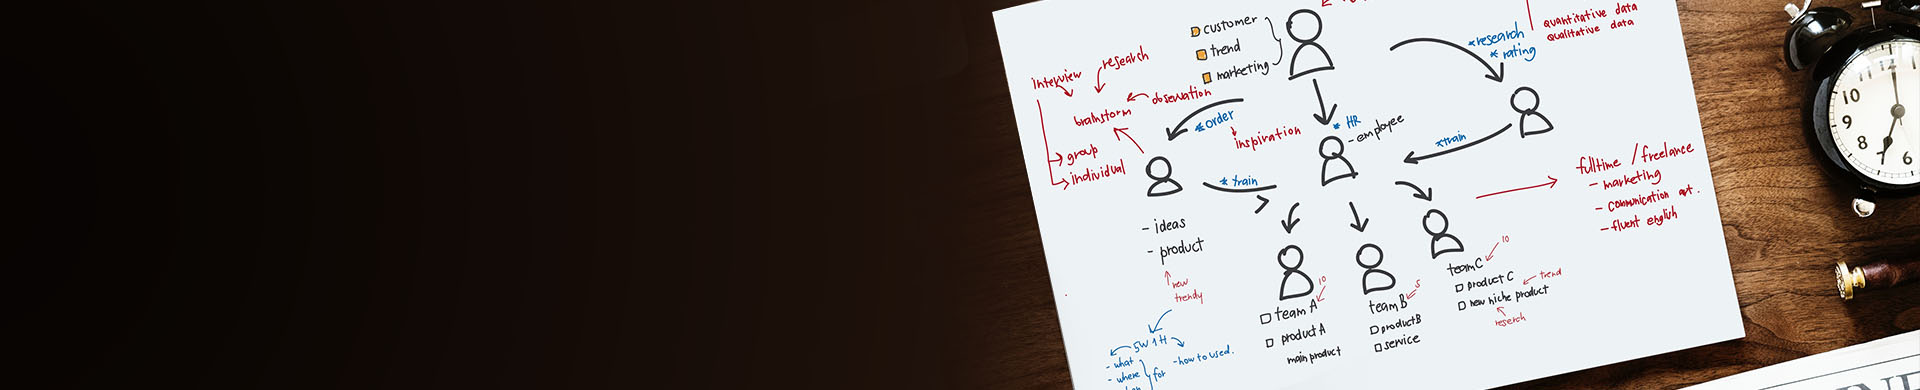 customer
trend
marketing
quantitative data
Qualitative data
*research
*rating
interview
research
obsevation
brainstorm
*order
inspiration
* HR
-employee
group
individual
*train
*train
- ideas
- product
new
trendy
5W 1H
- what
- where
for
-how to used.
team A
10
product A
main product
team B
5
productB
service
team C
10
product C
new niche product
trend
research
fulltime / freelance
- marketing
- communication
- fluent english
10
9
8
7
6
11
12